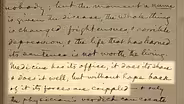 nobody, but the moment a name
is given the disease, the whole thing
is changed: fright ensues, & absolute
depression, & the life that has learned
its sentence is not worth the living.
Medicine has its office, it does its share
& does it well; but without hope back
of it its forces are crippled — & only
the physician's verdict can create